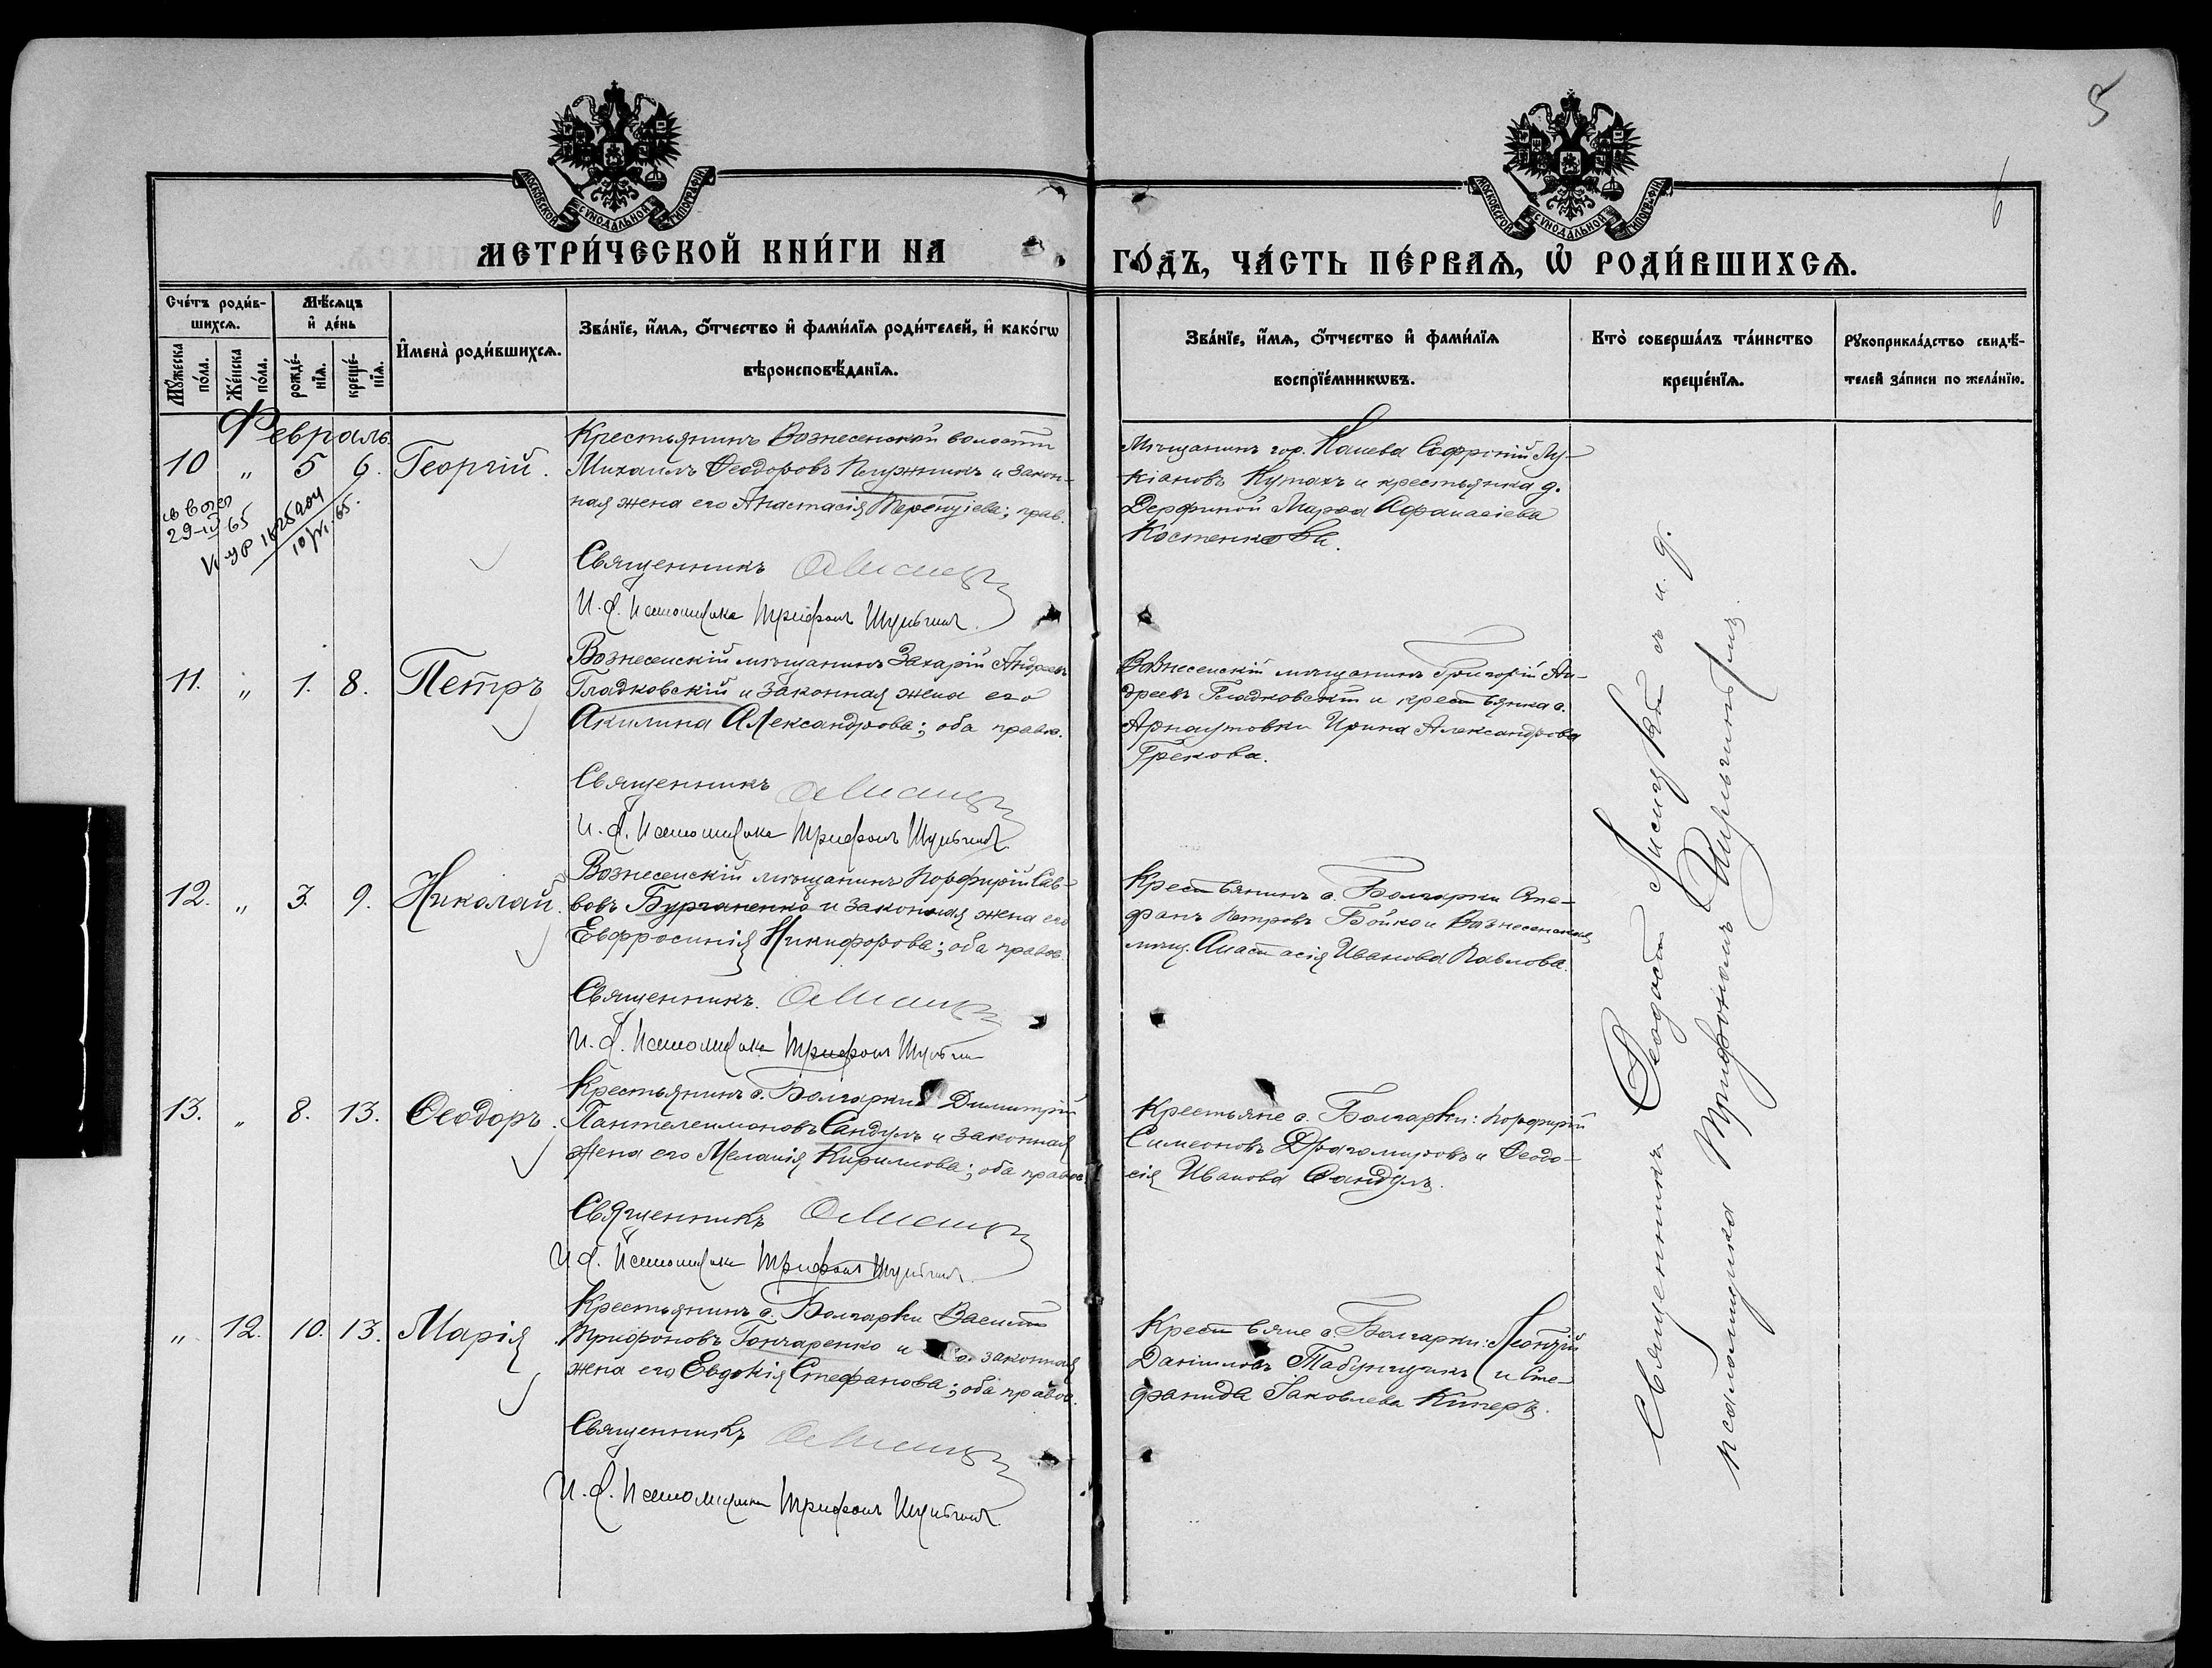 5
6
МОСКОВСКОЙ СѴНОДАЛЬНОЙ ТИПОГРАФІИ
МОСКОВСКОЙ СѴНОДАЛЬНОЙ ТИПОГРАФІИ
МЕТРИ́ЧЕСКОЙ КНИ́ГИ НА
ГО́ДЪ, ЧА́СТЬ ПЕ́РВАѦ, Ѡ҆ РОДИ́ВШИХСѦ.
Сче́тъ роди́в-
шихсѧ.
Мѣ́сѧцъ
и҆ де́нь
Мꙋ́жеска по́ла.
Же́нска по́ла.
рожде́-нїѧ.
креще́-нїѧ.
И҆мена̀ роди́вшихсѧ.
Зва́нїе, и҆́мѧ, ѻ҆́тчество и҆ фами́лїѧ роди́телей, и҆ како́гѡ
вѣроисповѣ́данїѧ.
Зва́нїе, и҆́мѧ, ѻ҆́тчество и҆ фами́лїѧ
воспрїе́мникѡвъ.
Кто̀ соверша́лъ та́инство
креще́нїѧ.
Рꙋкоприкла́дство свидѣ́-
телей за́писи по жела́нїю.
Февраль.
10 " 5 6. Георгій.
29-IV 65
10/VI-65.
Крестьянинъ Вознесенской волости
Михаилъ Ѳеодоровъ Пружникъ и закон-
ная жена его Анастасія Терентіева; прав.
Священникъ
И. д. псаломщика Трифонъ Шульгинъ.
Мѣщанинъ гор. Канева Софроній Лу-
кіановъ Кутахъ и крестьянка д.
Дерфиной Марѳа Аѳанасіева
Костенкова.
11. " 1. 8. Петръ
Вознесенскій мѣщанинъ Захарій Андреевъ
Гладковскій и законная жена его
Акилина Александрова; оба правос.
Священникъ
И. д. псаломщика Трифонъ Шульгинъ.
Вознесенскій мѣщанинъ Григорій Ан-
дреевъ Гладковскій и крестьянка с.
Арнаутовки Ирина Александрова
Грекова.
12. " 3. 9. Николай.
Вознесенскій мѣщанинъ Порфирій Сав-
вовъ Бурчаненко и законная жена его
Евфросинія Никифорова; оба правос.
Священникъ.
И. д. псаломщика Трифонъ Шульгинъ
Крестьянинъ с. Болгарки Сте-
фанъ Петровъ Бойко и Вознесенская
мѣщ. Анастасія Иванова Павлова.
13. " 8. 13. Ѳеодоръ.
Крестьянинъ с. Болгарки Димитрій
Пантелеимоновъ Сандулъ и законная
жена его Меланія Кириллова; оба правос
Священникъ
И. д. псаломщика Трифонъ Шульгинъ.
Крестьяне с. Болгарки: Порфирій
Симеоновъ Драгомировъ и Ѳеодо-
сія Иванова Сандулъ.
" 12. 10. 13. Марія
Крестьянинъ с. Болгарки Василій
Трифоновъ Гончаренко и законная
жена его Евдокія Стефанова; оба правос.
Священникъ
И. д. псаломщика Трифонъ Шульгинъ.
Крестьяне с. Болгарки: Леонтій
Даніиловъ Табунщикъ и Сте-
фанида Іаковлева Киперъ.
Священникъ Ѳеодосій Лисицкій съ и. д.
псаломщика Трифономъ Шульгинымъ.